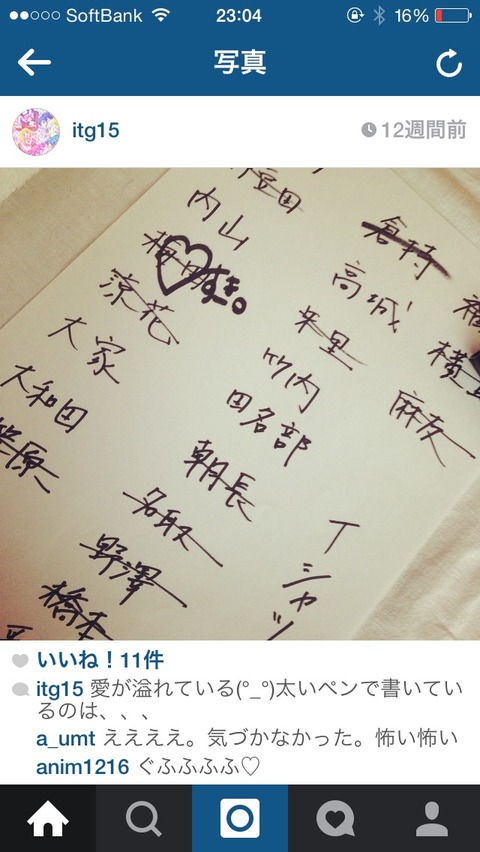 SoftBank 23:04 16%
写真
itg15 12週間前
豆田
内山
涼花
大家
大和田
笠原
倉持
高城
朱里
竹内
田名部
朝長
名取
野澤
橋本
横
麻友
すき。
Tシャツ
いいね!11件
itg15 愛が溢れている(°_°)太いペンで書いてい
るのは、、、
a_umt ええええ。気づかなかった。怖い怖い
anim1216 ぐふふふふ♡